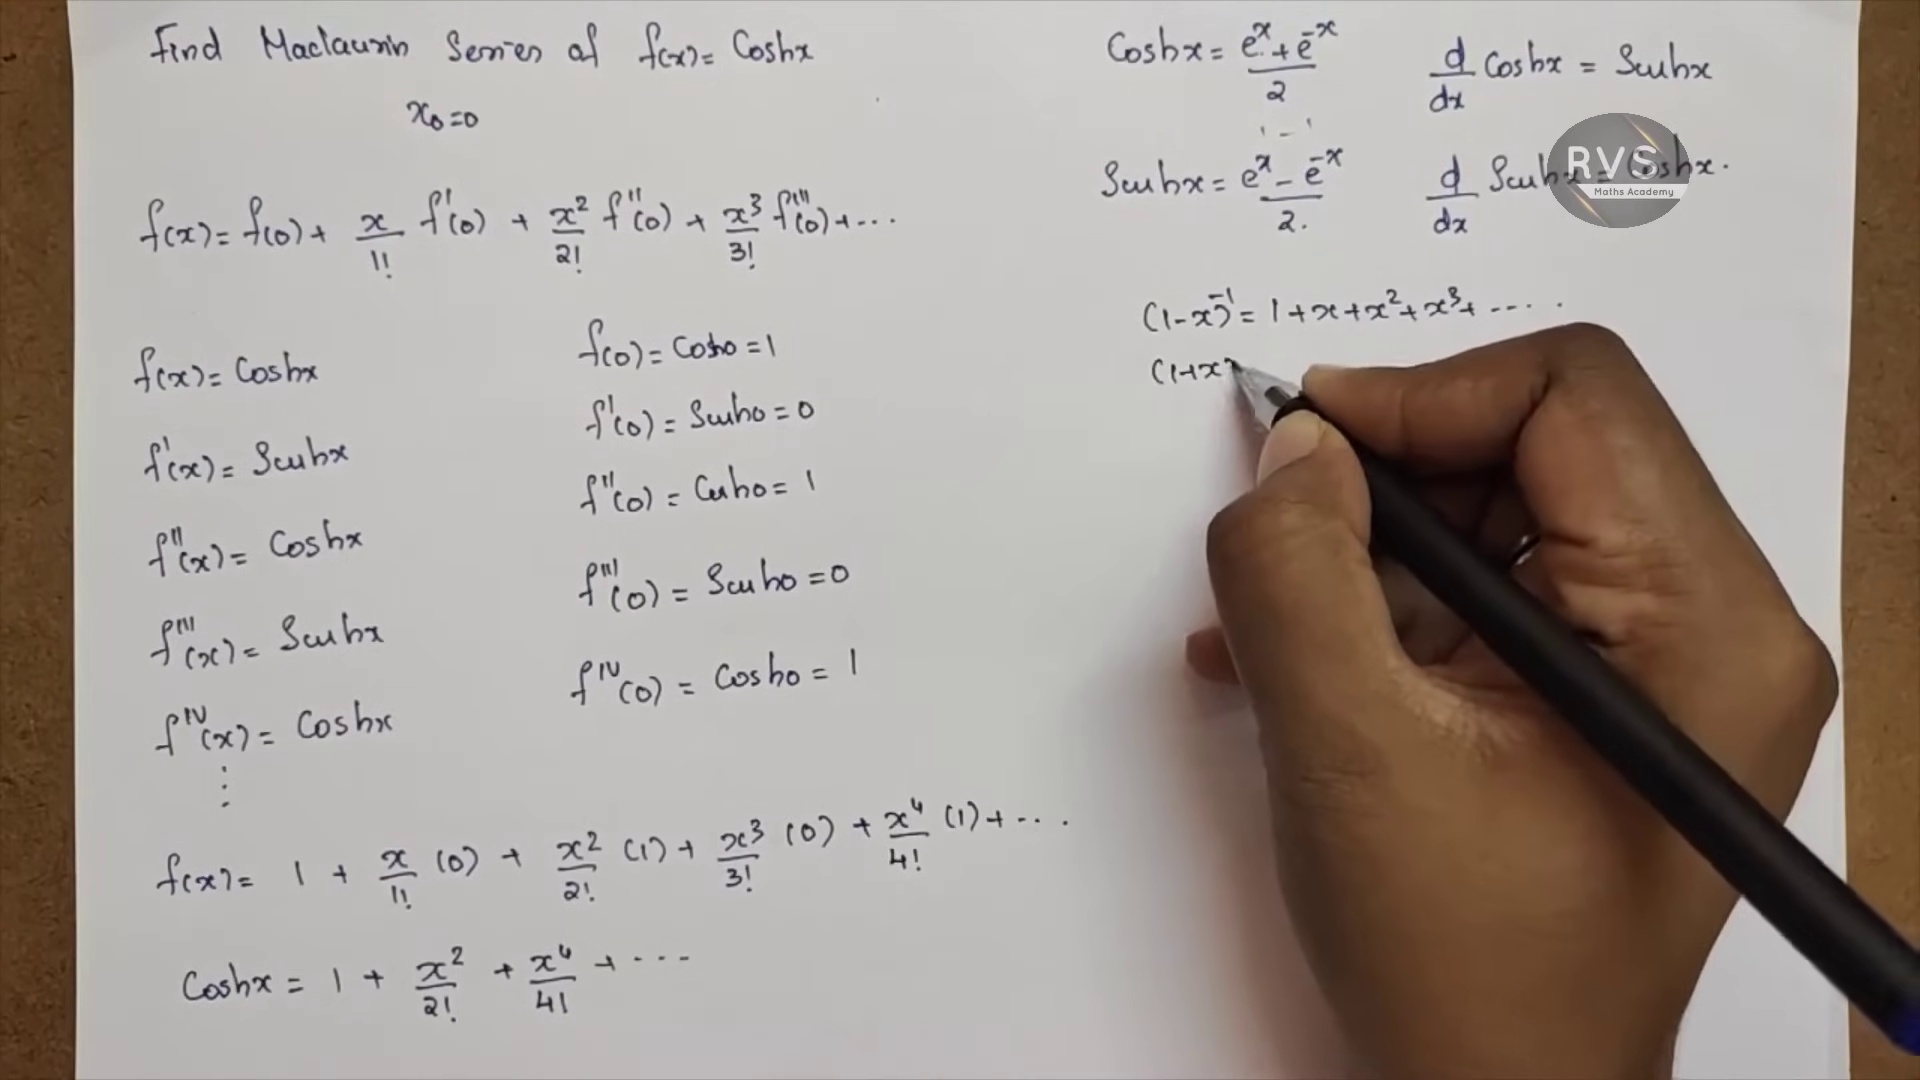 Find Maclaurin Series of f(x) = Coshx
x₀=0
f(x) = f(0) + x/1! f'(0) + x²/2! f''(0) + x³/3! f'''(0) + ...
f(x) = Coshx
f'(x) = Sinhx
f''(x) = Coshx
f'''(x) = Sinhx
f^IV(x) = Coshx
⋮
f(0) = Cosh0 = 1
f'(0) = Sinh0 = 0
f''(0) = Cosh0 = 1
f'''(0) = Sinh0 = 0
f^IV(0) = Cosh0 = 1
f(x) = 1 + x/1! (0) + x²/2! (1) + x³/3! (0) + x⁴/4! (1) + ...
Coshx = 1 + x²/2! + x⁴/4! + ...
Coshx = (e^x + e^-x)/2
d/dx Coshx = Sinhx
1 - 1
Sinhx = (e^x - e^-x)/2.
d/dx Sinhx = Coshx.
RVS
Maths Academy
(1-x)^-1 = 1 + x + x² + x³ + .....
(1+x)